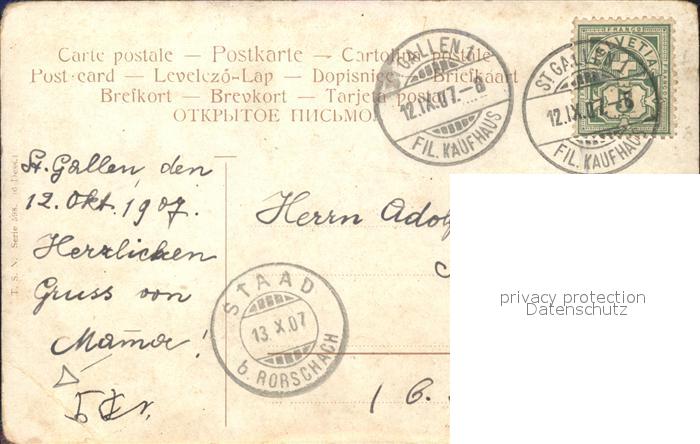 Carte postale — Postkarte — Cartolina postale
Post-card — Levelező-Lap — Dopisnice — Briefkaart
Brefkort — Brevkort — Tarjeta postal
ОТКРЫТОЕ ПИСЬМО.
ST. GALLEN 1
12.IX.07.-8
FIL. KAUFHAUS
ST. GALLEN 1
12.IX.07.-8
FIL. KAUFHAUS
FRANCO
HELVETIA
St. Gallen, den
12. Okt. 1907.
Herzlichen
Gruss von
Mama!
Herrn Adolf
STAAD
13.X.07
b. RORSCHACH
16.
T. S. N. Serie 598
privacy protection
Datenschutz